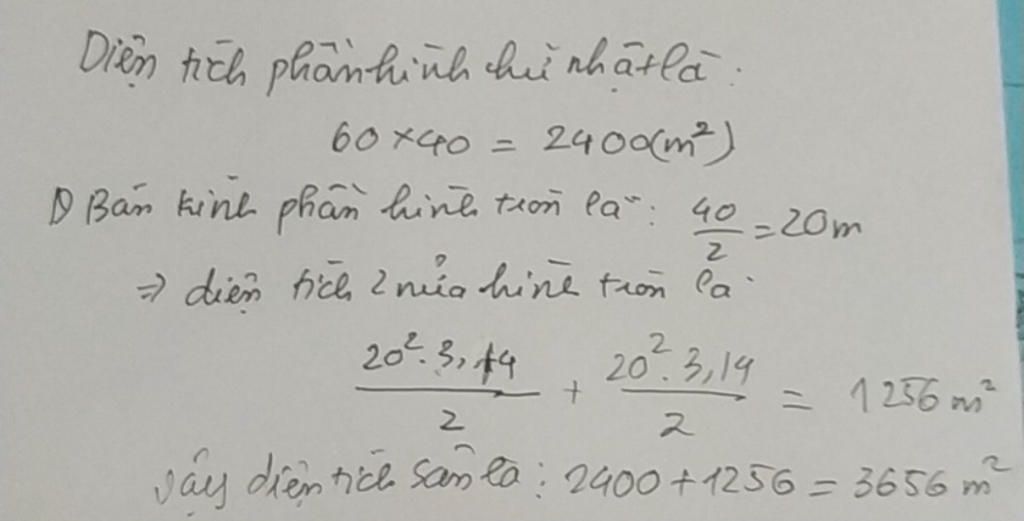 Diện tích phần hình chữ nhật là:
60 × 40 = 2400(m²)
Bán kính phần hình tròn là: 40/2 = 20m
⇒ diện tích 2 nửa hình tròn là:
20². 3,14/2 + 20². 3,14/2 = 1256 m²
Vậy diện tích sân là: 2400 + 1256 = 3656 m²